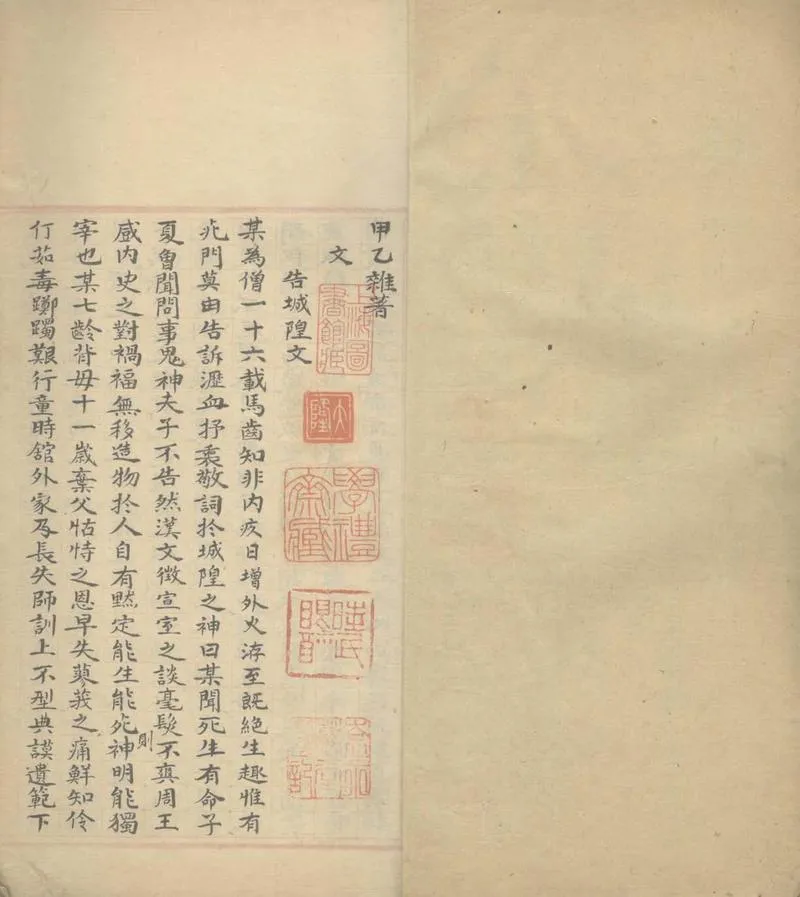 甲乙雜著
文
告城隍文
某為僧一十六載馬齒知非內疚日增外火洊至既絕生趣惟有
兆門莫由告訴瀝血抒衷敬詞於城隍之神曰某聞死生有命子
夏魯聞問事鬼神夫子不告然漢文徵宣室之談毫髮不爽周王
感內史之對禍福無移造物於人自有默定能生能死則神明能獨
宰也某七齡背母十一歲棄父怙恃之恩早失蓼莪之痛鮮知伶
仃茹毒躑躅艱行童時舘外家及長失師訓上不型典謨遺範下
上海圖書館藏
大隆
學禮齋藏